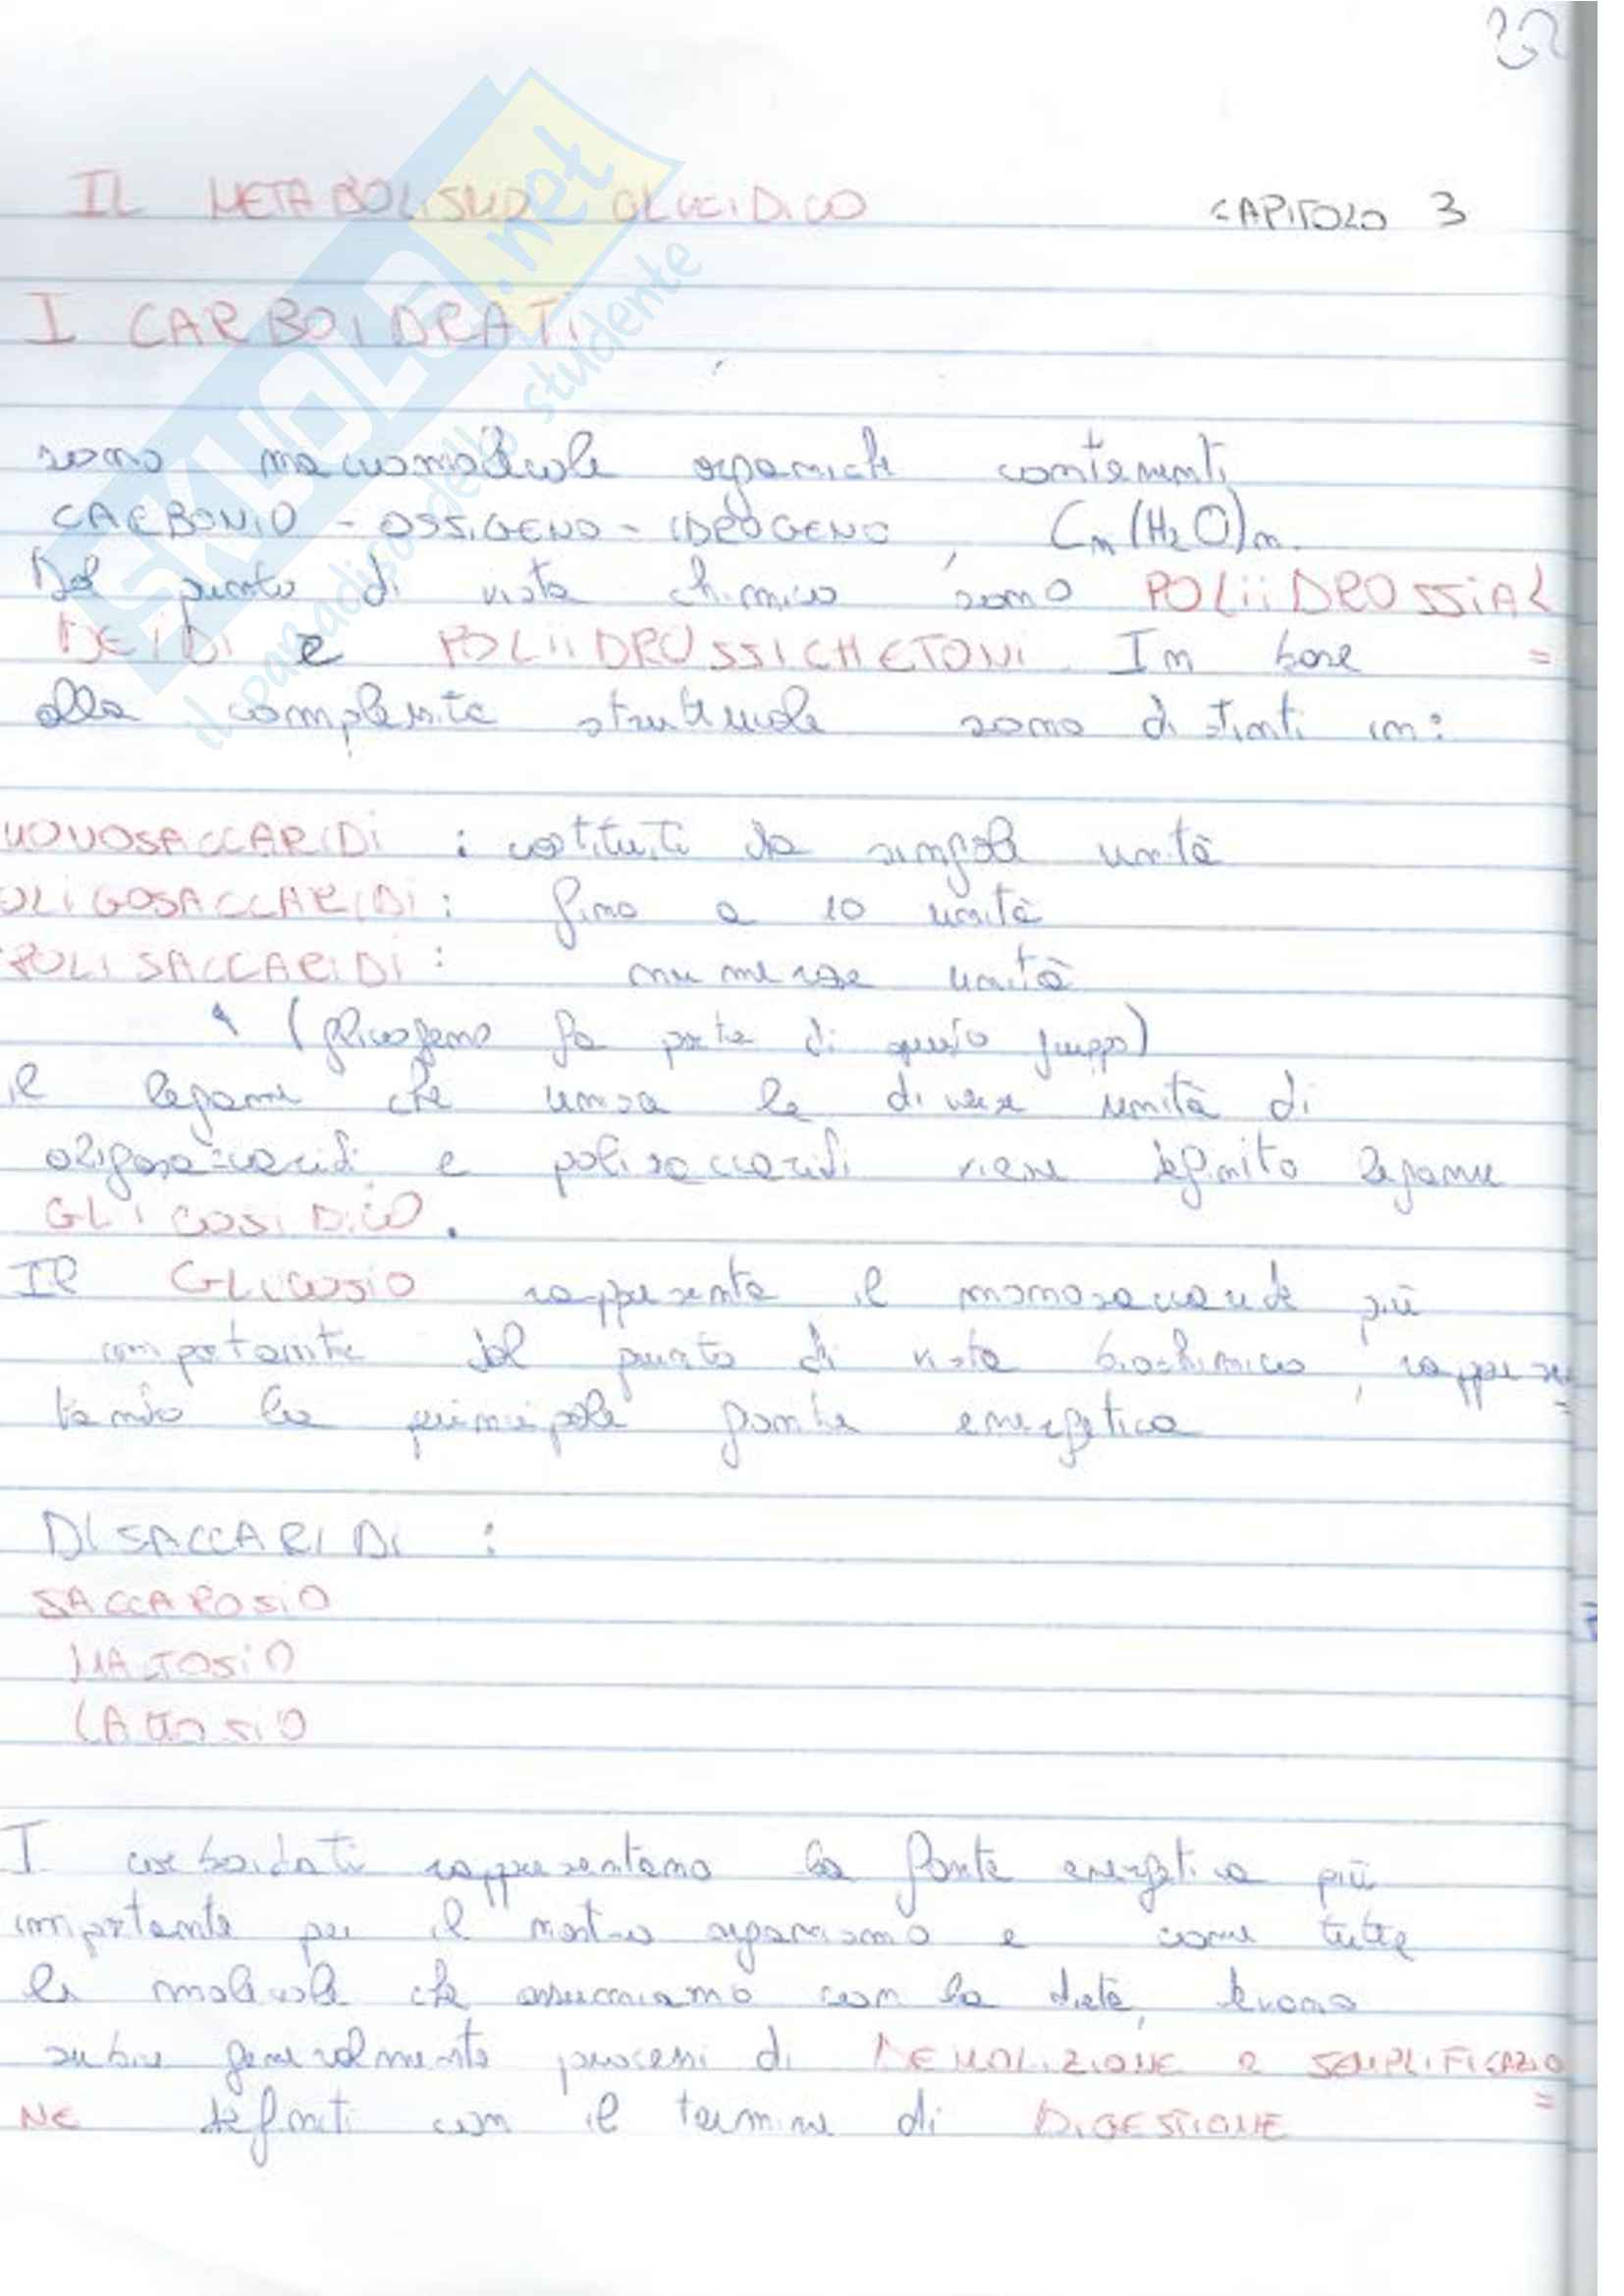 IL METABOLISMO GLUCIDICO CAPITOLO 3
I CARBOIDRATI
sono macromolecole organiche contenenti
CARBONIO - OSSIGENO - IDROGENO, Cn(H2O)n.
Dal punto di vista chimico sono POLIIDROSSIAL
DEIDI e POLIIDROSSICHETONI. In base =
alla complessità strutturale sono distinti in:
MONOSACCARIDI : costituiti da singole unità
OLIGOSACCARIDI : fino a 10 unità
POLISACCARIDI : numerose unità
(glicogeno fa parte di questo gruppo)
il legame che unisce le diverse unità di
oligosaccaridi e polisaccaridi viene definito legame
GLICOSIDICO.
Il GLICOSIO rappresenta il monosaccaride più
importante dal punto di vista biochimico, rappresen=
tando la principale fonte energetica
DISACCARIDI :
SACCAROSIO
MALTOSIO
LATTOSIO
I carboidrati rappresentano la fonte energetica più
importante per il nostro organismo e come tutte
le molecole che assumiamo con la dieta, devono
subire generalmente processi di DEMOLIZIONE e SEMPLIFICAZIO
NE definiti con il termine di DIGESTIONE =
SKUOLA.net
il paradiso dello studente